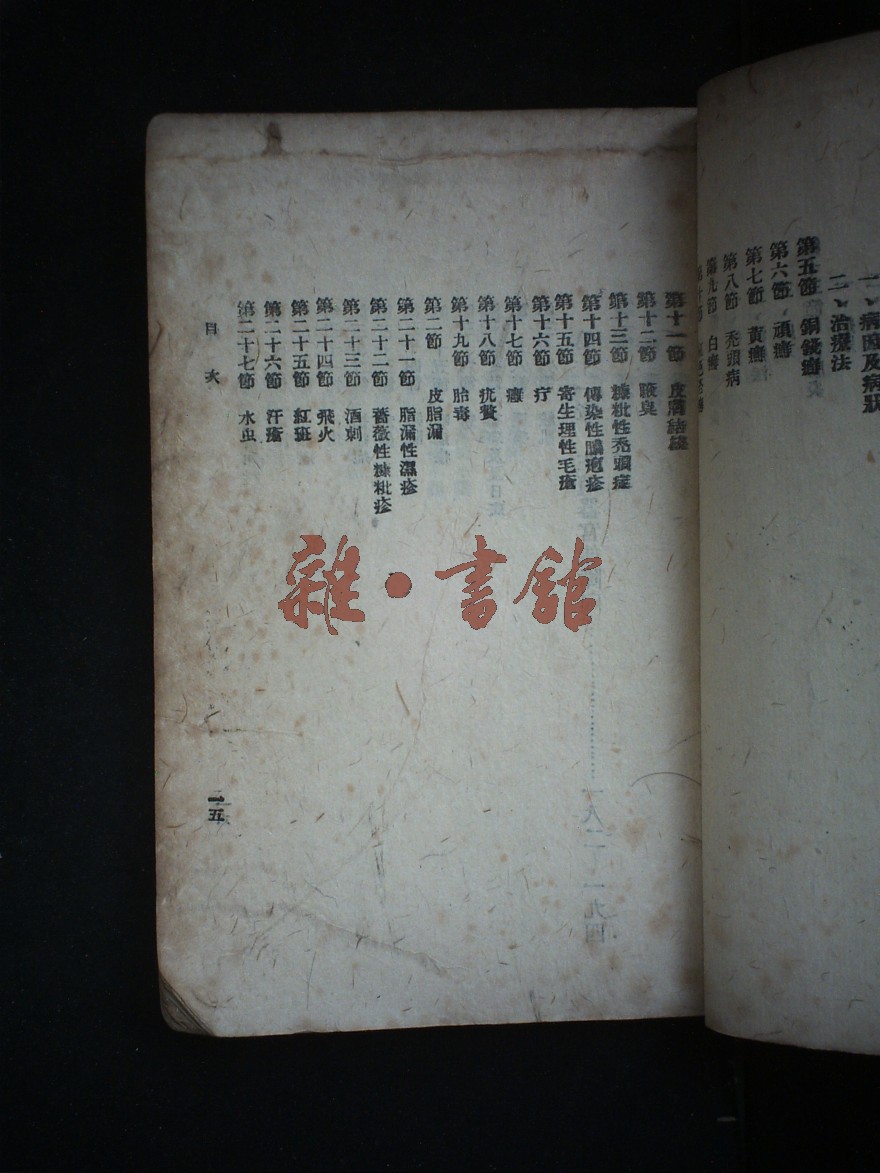 一、病因及病狀
二、治療法
第五節 銅錢癬
第六節 頑癬
第七節 黃癬
第八節 禿頭病
第九節 白癬
第十一節 皮膚結核
第十二節 腋臭
第十三節 糠粃性禿頭症
第十四節 傳染性膿疱疹
第十五節 寄生理性毛瘡
第十六節 疔
第十七節 癭
第十八節 疣贅
第十九節 胎毒
第二節 皮脂漏
第二十一節 脂漏性濕疹
第二十二節 薔薇性糠粃疹
第二十三節 酒刺
第二十四節 飛火
第二十五節 紅斑
第二十六節 汗瘡
第二十七節 水虫
目次
二五
雜·書館